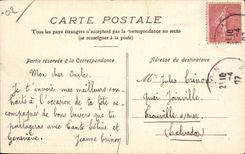 -02
CARTE POSTALE
Tous les pays étrangers n'acceptent pas la correspondance au recto
(se renseigner à la poste)
Partie réservée à la Correspondance
Adresse du destinataire
Mon cher Oncle,
Je t'envoie mes meilleurs sou-
haits à l'occasion de ta fête ac-
compagnés de bons baisers que tu
partageras avec Tante Céline et
Geneviève.
Jeanne
Mr Jules
Quai Joinville
Trouville s/mer
(Calvados)